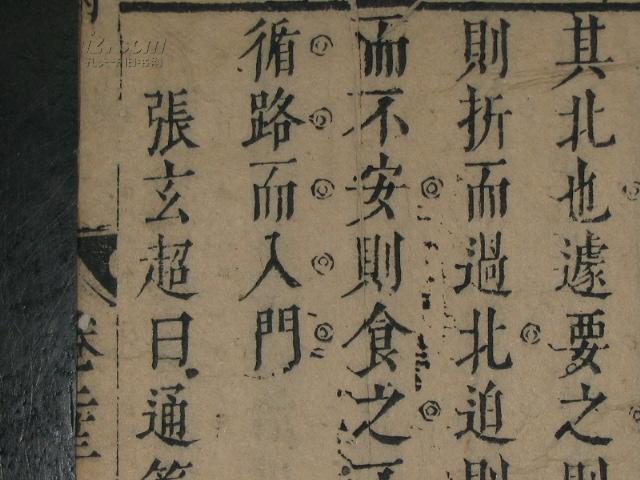 其北也遽要之則
則折而過北迫則
而不安則食之
循路而入門
張玄超曰通